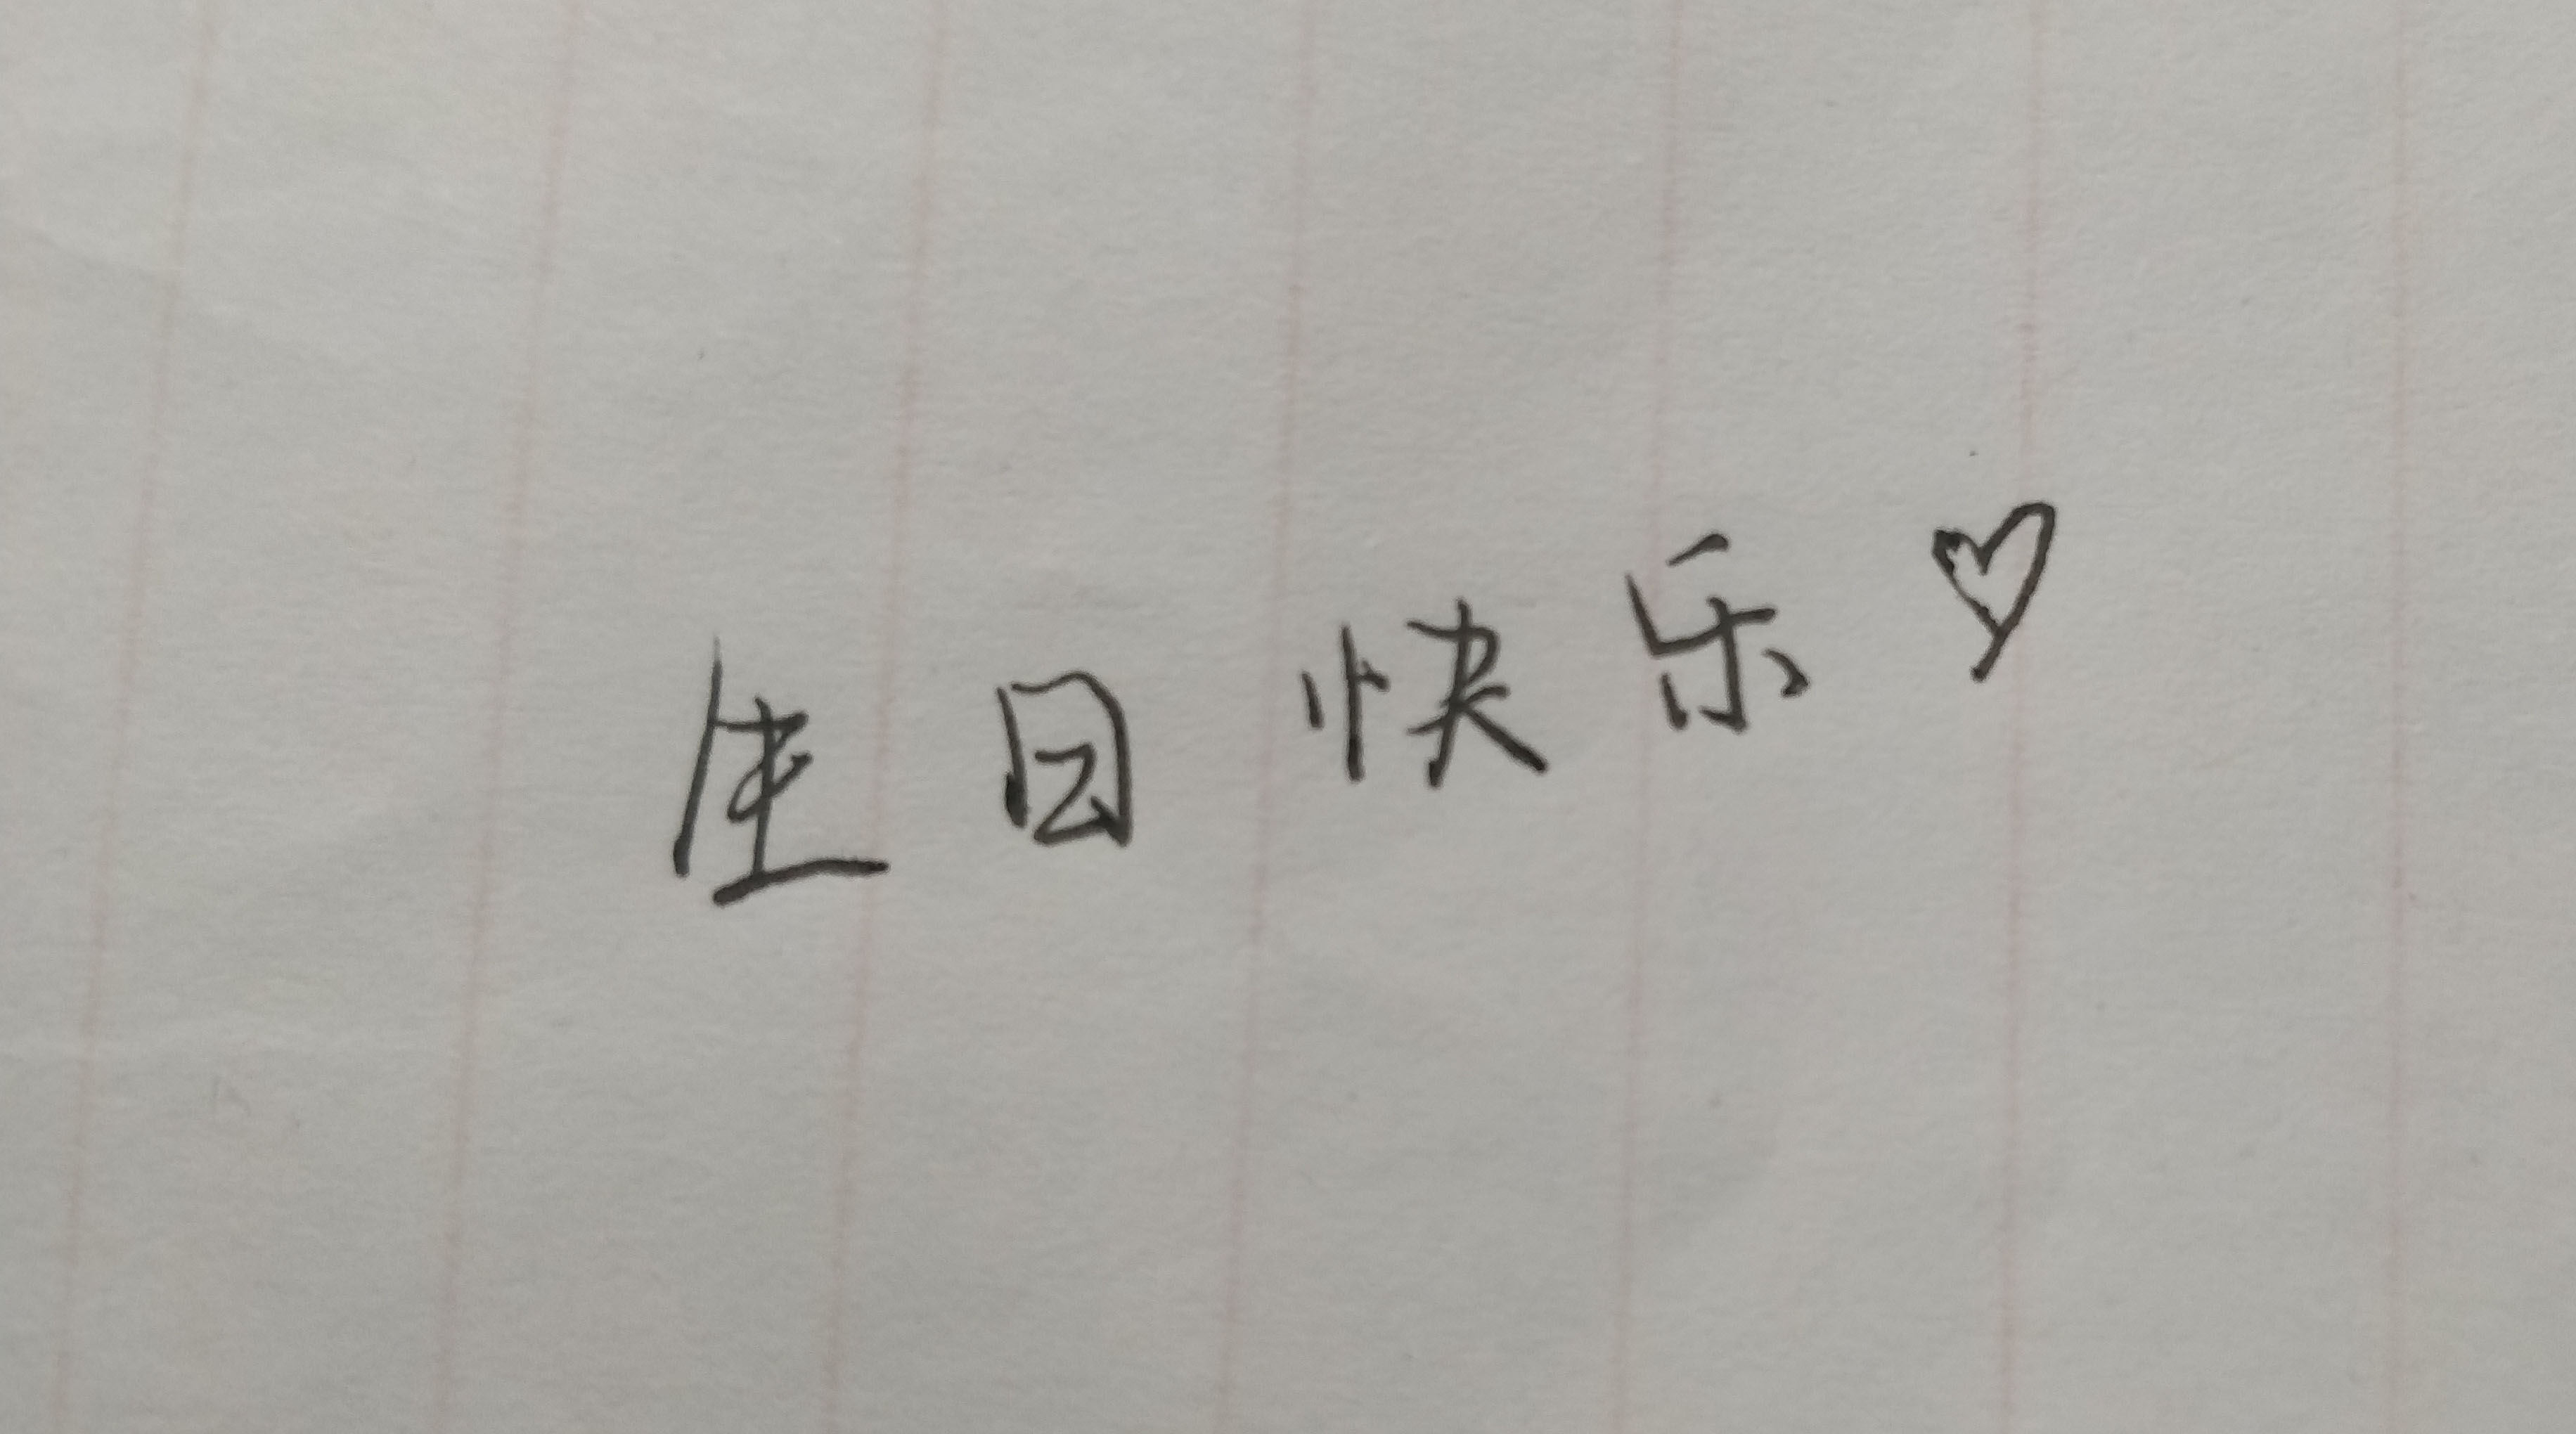 生日快乐♡